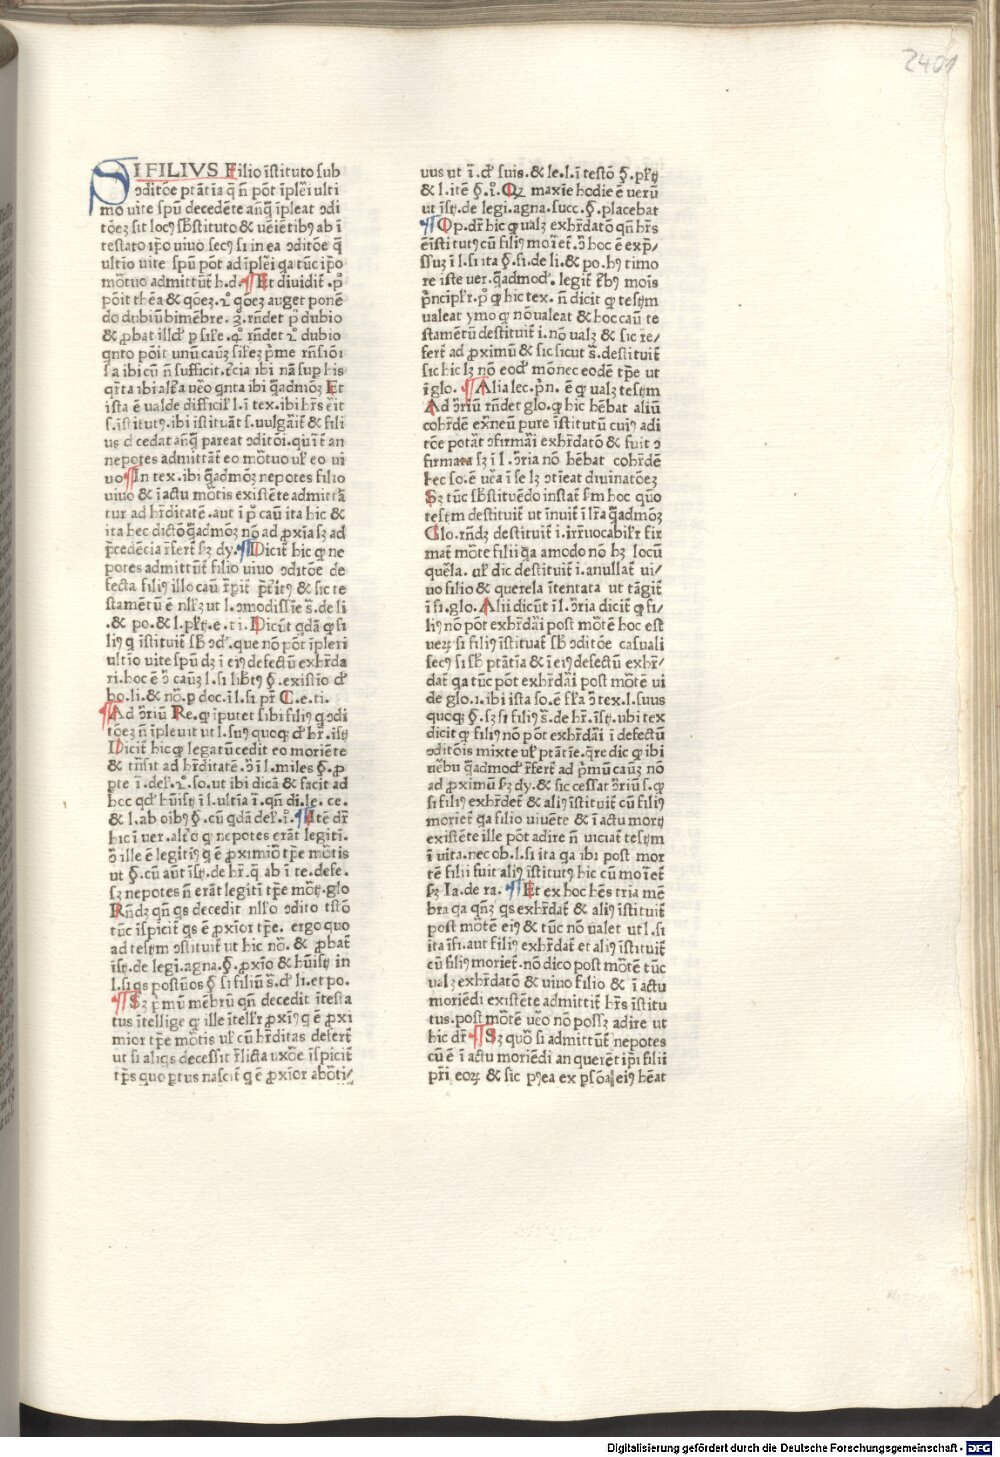 2401
SI FILIVS Filio īstituto sub
ↄditōe ptātia q̄ n̄ pōt īpleri ulti
mo uite spū decedēte anq̄ īpleat ↄdi
tōeꝫ sit locꝰ sƀstituto & ueiētibꝰ ab ī
testato ip̄o uiuo secꝰ si in ea ↄditōe q̄
ultīo uite spū pōt adīpleri qa tūc ip̄o
mōtuo admittūt̄ h.d. Et diuidit̄ .p̊
pōit thēa & qōeꝫ .2̊ qōeꝫ auget ponē
do dubiū bimēbre. 3̊ rn̄det p̄ dubio
& ꝓbat illd̄ p simile .4̊ rn̄det 2̊ dubio
qnto pōit unū cauꝫ similē p̄me rn̄siōi
sa ibi cū n̄ sufficit. ibi nā sup his
ibi alr̄a uēo qnta ibi q̄admōꝫ Et
ista ē ualde difficil̄ l. ī tex. ibi hr̄s ēit
s. īstitutꝰ. ibi istituāt̄ s. uulgāit̄ & fili
us decedat anq̄ pareat ↄditōi. qui t̄ an
nepotes admittāt̄ eo mōtuo ul̄ eo ui
uo In tex. ibi q̄admōꝫ nepotes filio
uiuo & ī actu mōtis existēte admittā
tur ad hr̄ditatē. aut ī p̄ cau ita hic &
ita hec dictō q̄admōꝫ nō ad ꝓxīa sꝫ ad
p̄cedēcia rēfert̄ sꝫ dy. Dicit̄ hic ꝙ ne
potes admittūt̄ filio uiuo ↄditōe de
fecta filiꝰ illo cau r̄pit̄ p̄t̄itꝰ & sic te
stamētū ē nllꝫ ut l. ↄmodissīe s̄. de li
.& po. & l. pl̄ꝫ. e. ti. Dicūt qdā ꝙ si
liꝰ q īstituit̄ sƀ ↄd̊. que nō pōt īpleri
ultīo uite spū dꝫ ī eiꝰ defectū exhr̄da
ri. hoc ē ↄ̄ cauꝫ l. si lib̄tꝰ §. existīo d̄
bo. li. & nō. p doc. ī l. si pr̄ C. e. ti.
Ad ↄ̄riū Re. ꝙ īputet sibi filiꝰ q ↄdi
tōeꝫ n̄ īpleuit ut l. suꝰ quoqꝫ d̄ hr̄. īstꝫ
Dicit̄ hic ꝙ legatū cedit eo moriēte
& trn̄sit ad hr̄ditatē. ↄ̄ ī l. miles §. ꝓ
pte ī. des̄. 2̊. so. ut ibi dicā & facit ad
hoc qd̄ hūistꝫ ī l. ultīa ī. qn̄ di. le. ce.
& l. ab oibꝰ §. cū qdā des̄. ī. Itē dr̄
hic ī uer. alr̄o ꝙ nepotes erāt legiti.
ↄ̄ ille ē legitiꝰ q ē ꝓximiō tp̄e mōtis
ut §. cū aut̄ īstꝫ. de hr̄. q̄. ab ī te. defe.
sꝫ nepotes n̄ erāt legiti tp̄e mōtꝫ. glo
Rn̄dꝫ qn̄ qs decedit nllo ↄdito tstō
tūc īspicit̄ qs ē ꝓxior tp̄e. ergo quo
ad tesꝫm ↄstituit̄ ut hic nō. & ꝓbat̄
īstꝫ. de legi. agna. §. ꝓxīo & hūistꝫ in
l. si qs postūos § si filiū s̄. d̄ li. et po.
Sꝫ p̄mū mēbrū qn̄ decedit ītesta
tus ītellige ꝙ ille ītell̄r ꝓxīꝰ q ē ꝓxi
mior tp̄e mōtis ul̄ cū hr̄ditas defert̄
ut si aliqs decessit r̄licta uxōe īspicit̄
tp̄s quo ptus nascit̄ q ē ꝓxior abōti/
uus ut ī. d̄ suis. & le. l. ī testō §. pl̄ꝫ
& l. itē §. ī̊. Qꝫ maxīe hodie ē uerū
ut īstꝫ. de legi. agna. succ. §. placebat
Op. dr̄ hic ꝙ ualꝫ exhr̄datō qn̄ hr̄s
ē īstitutꝰ cū filiꝰ moīet̄. ↄ̄ hoc ē exp̄/
ssuꝫ ī l. si ita §. si. de li. & po. hꝰ timo
re iste uer. q̄admod̊. legit̄ t̄bꝰ mois
p̄ncipl̄r. p̊ ꝙ hic tex. n̄ dicit ꝙ tesꝫm
ualeat ymo ꝙ nō ualeat & hoc cau te
stamētū destituit̄ ī. nō ualꝫ & sic re/
fert̄ ad ꝓximū & sic sicut s̄. destituit̄
sic hic lꝫ nō eod̄ mō nec eodē tp̄e ut
ī glo. Alia lec. pn̄. ē ꝙ ualꝫ tesꝫm
Ad ↄ̄riū rn̄det glo. ꝙ hic hēbat aliū
cohr̄dē exn̄eū pure īstitutū cuiꝰ adi
tōe potāt ↄfirmāi exhr̄datō & fuit ↄ
firmata sꝫ ī l. ↄ̄ria nō hēbat cohr̄dē
hec so. ē uēa ī se lꝫ ↄtieat diuinatōeꝫ
Sꝫ tūc sƀstituēdo instat̄ sm hoc quō
tesꝫm destituit̄ ut īnuit̄ ī lr̄a q̄admōꝫ
Glo. rn̄dꝫ destituit̄ ī. irr̄uocabil̄r fir
mat̄ mōte filii qa amodo nō hꝫ locū
quēla. ul̄ dic destituit̄ ī. anullat̄ ui/
uo filio & querela ītentata ut tāgit̄
ī si. glo. Alii dicūt ī l. ↄ̄ria dicit̄ ꝙ fi/
liꝰ nō pōt exhr̄dāi post mōtē hoc est
ueꝝ si filiꝰ īstituat̄ sƀ ↄditōe casuali
secꝰ si sƀ ptātīa & ī eiꝰ defectū exhr̄/
dat̄ qa tūc pōt exhr̄dāi post mōtē ui
de glo. 1. ibi ista so. ē fl̄a ↄ̄ tex. l. suus
quoqꝫ §. sꝫ si filiꝰ s̄. de hr̄. īstꝫ. ubi tex
dicit ꝙ filiꝰ nō pōt exhr̄dāi ī defectū
ↄditōis mixte ul̄ ptātīe. q̄re dic ꝙ ibi
uēbū q̄admod̄ rēfert̄ ad p̄mū cauꝫ nō
ad ꝓximū sꝫ dy. & sic cessat ↄ̄riū s. ꝙ
si filiꝰ exhr̄det̄ & aliꝰ īstituit̄ cū filiꝰ
moriet̄ qa filio uiuēte & ī actu mortꝫ
existēte ille pōt adire n̄ uiciat̄ tesꝫm
ī uita. nec ob. l. si ita qa ibi post mor
tē filii fuit aliꝰ īstitutꝰ hic cū moīet̄
sꝫ Ia. de ra. Et ex hoc hēs tria mē
bra qa qn̄ꝫ qs exhr̄dat̄ & aliꝰ īstituit̄
post mōtē eiꝰ & tūc nō ualet ut l. si
ita īfi. aut filiꝰ exhr̄dat̄ et aliꝰ īstituit̄
cū filiꝰ moriet̄. nō dico post mōtē tūc
ualꝫ exhr̄datō & uiuo filio & ī actu
moriēdi existēte admittit̄ hr̄s īstitu
tus. post mōtē uēo nō possꝫ adire ut
hic dr̄ Sꝫ quō si admittūt̄ nepotes
cū ē ī actu moriēdi an querēt ip̄i filii
pr̄i eoꝝ & sic pꝰea ex psōa eiꝰ hēat
Digitalisierung gefördert durch die Deutsche Forschungsgemeinschaft - DFG